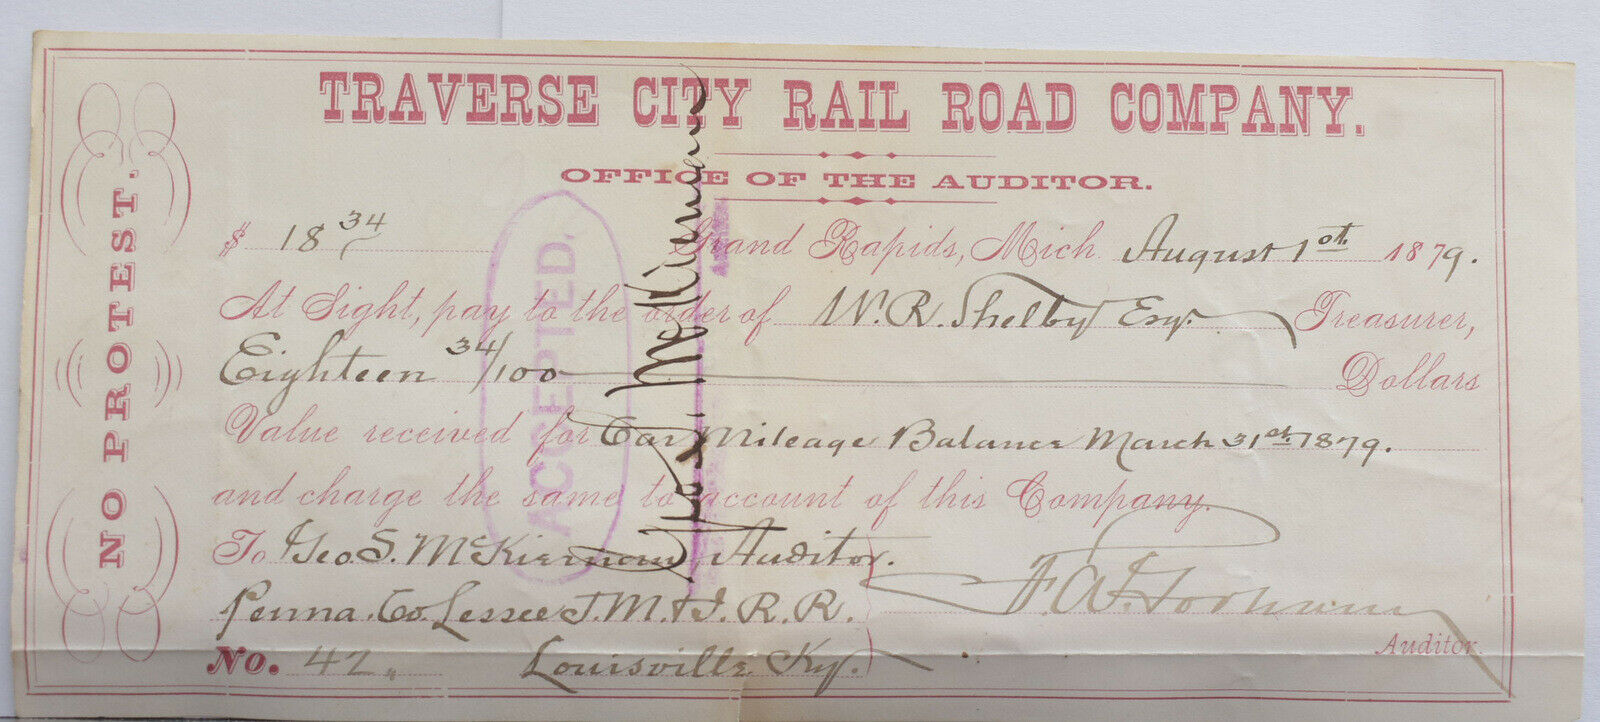 TRAVERSE CITY RAIL ROAD COMPANY.
OFFICE OF THE AUDITOR.
NO PROTEST.
$ 18 34/ Grand Rapids, Mich. August 1st. 1879.
At Sight, pay to the order of W. R. Shelby Esq. Treasurer,
Eighteen 34/100 Dollars
Value received for Car Mileage Balance March 31st. 1879.
and charge the same to account of this Company.
To Geo S. McKiernan Auditor.
Penna. Co. Lessee J. M. & I. R. R.
F. A. Gorham
Auditor.
No. 42 Louisville Ky.
ACCEPTED.
Geo. S. McKiernan